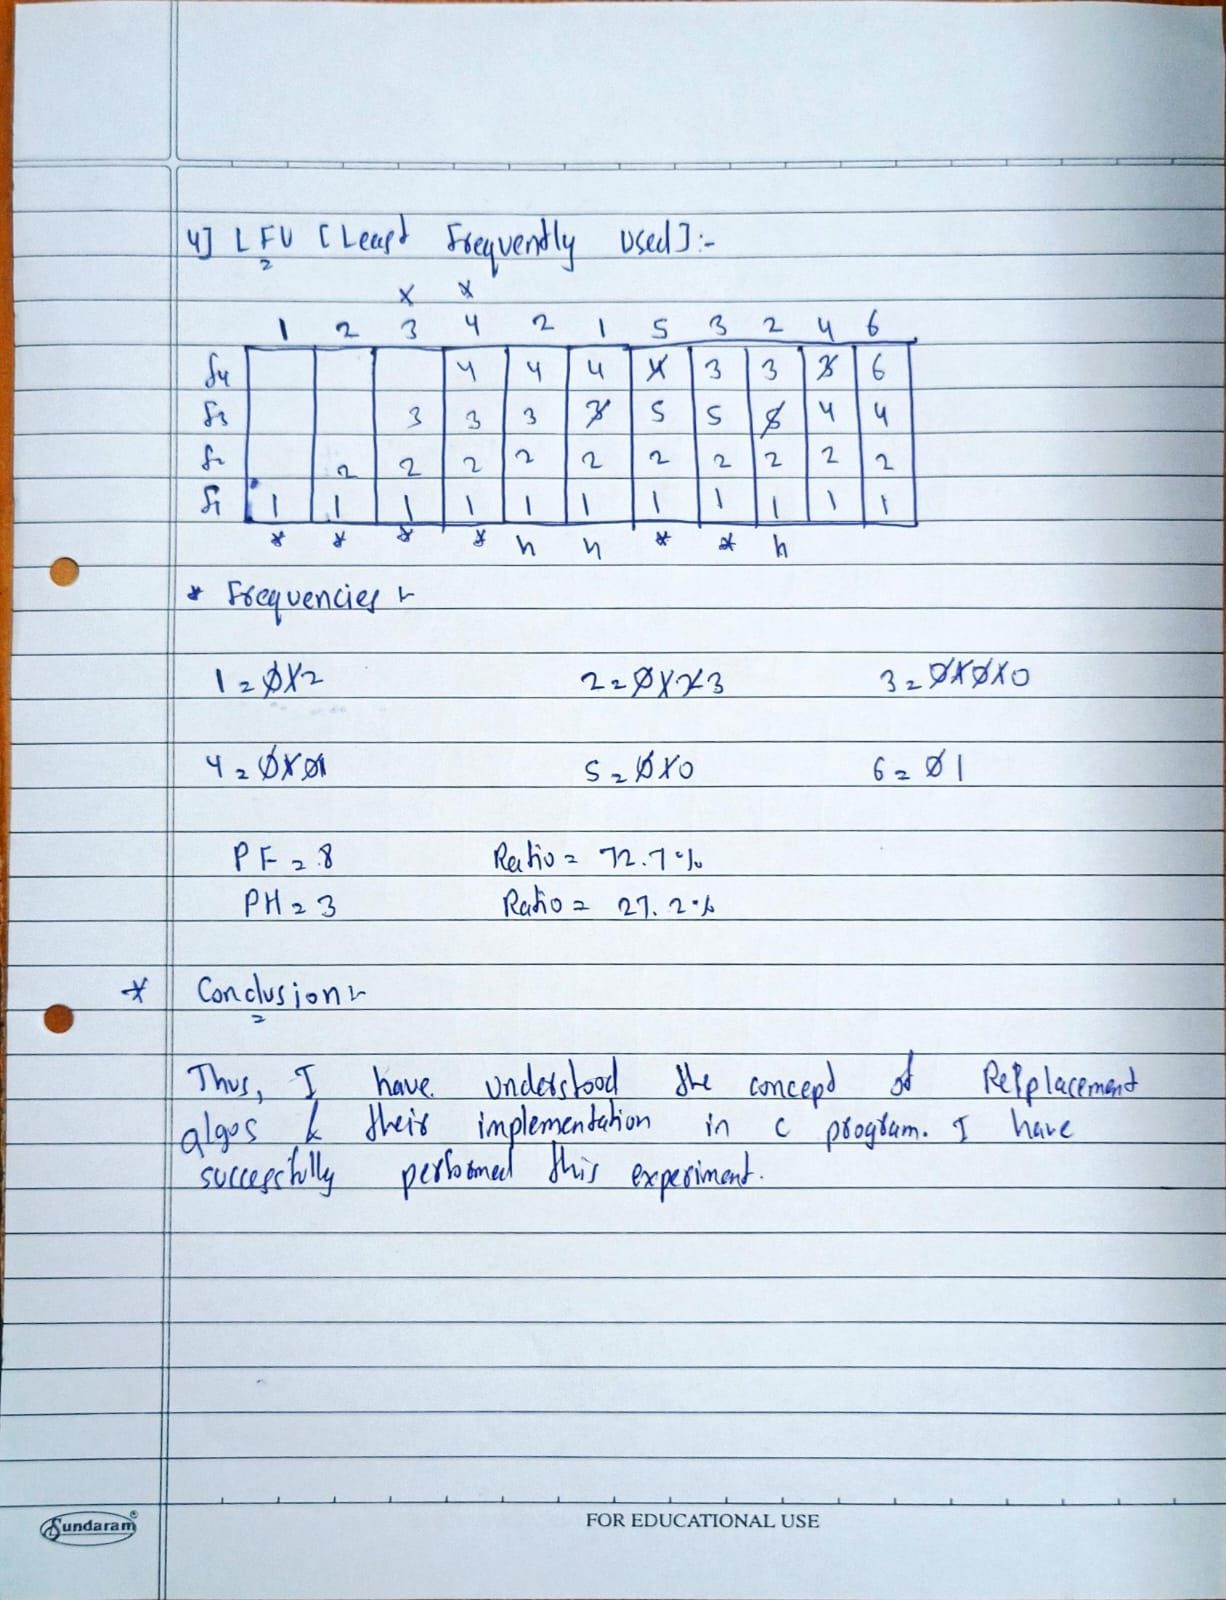 4] LFU [Least Frequently Used]:-
x x
1 2 3 4 2 1 5 3 2 4 6
f4 4 4 4 4 3 3 3 6
f3 3 3 3 3 5 5 5 4 4
f2 2 2 2 2 2 2 2 2 2 2
f1 1 1 1 1 1 1 1 1 1 1 1
* * * * h h * * h
* Frequencies :-
1 = 0 1 2 2 = 0 1 2 3 3 = 0 1 0 1 0
4 = 0 1 0 1 5 = 0 1 0 6 = 0 1
PF = 8 Ratio = 72.7%
PH = 3 Ratio = 27.2%
* Conclusion :-
Thus, I have understood the concept of Replacement
algos & their implementation in c program. I have
successfully performed this experiment.
Sundaram®
FOR EDUCATIONAL USE